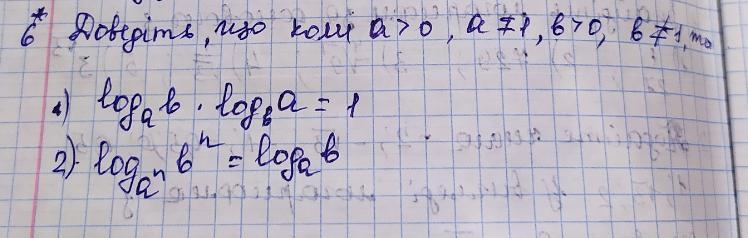 6* Доведіть, що коли a > 0, a ≠ 1, b > 0, b ≠ 1, то
1) logₐb · log_b a = 1
2) log_{aⁿ} bⁿ = logₐb